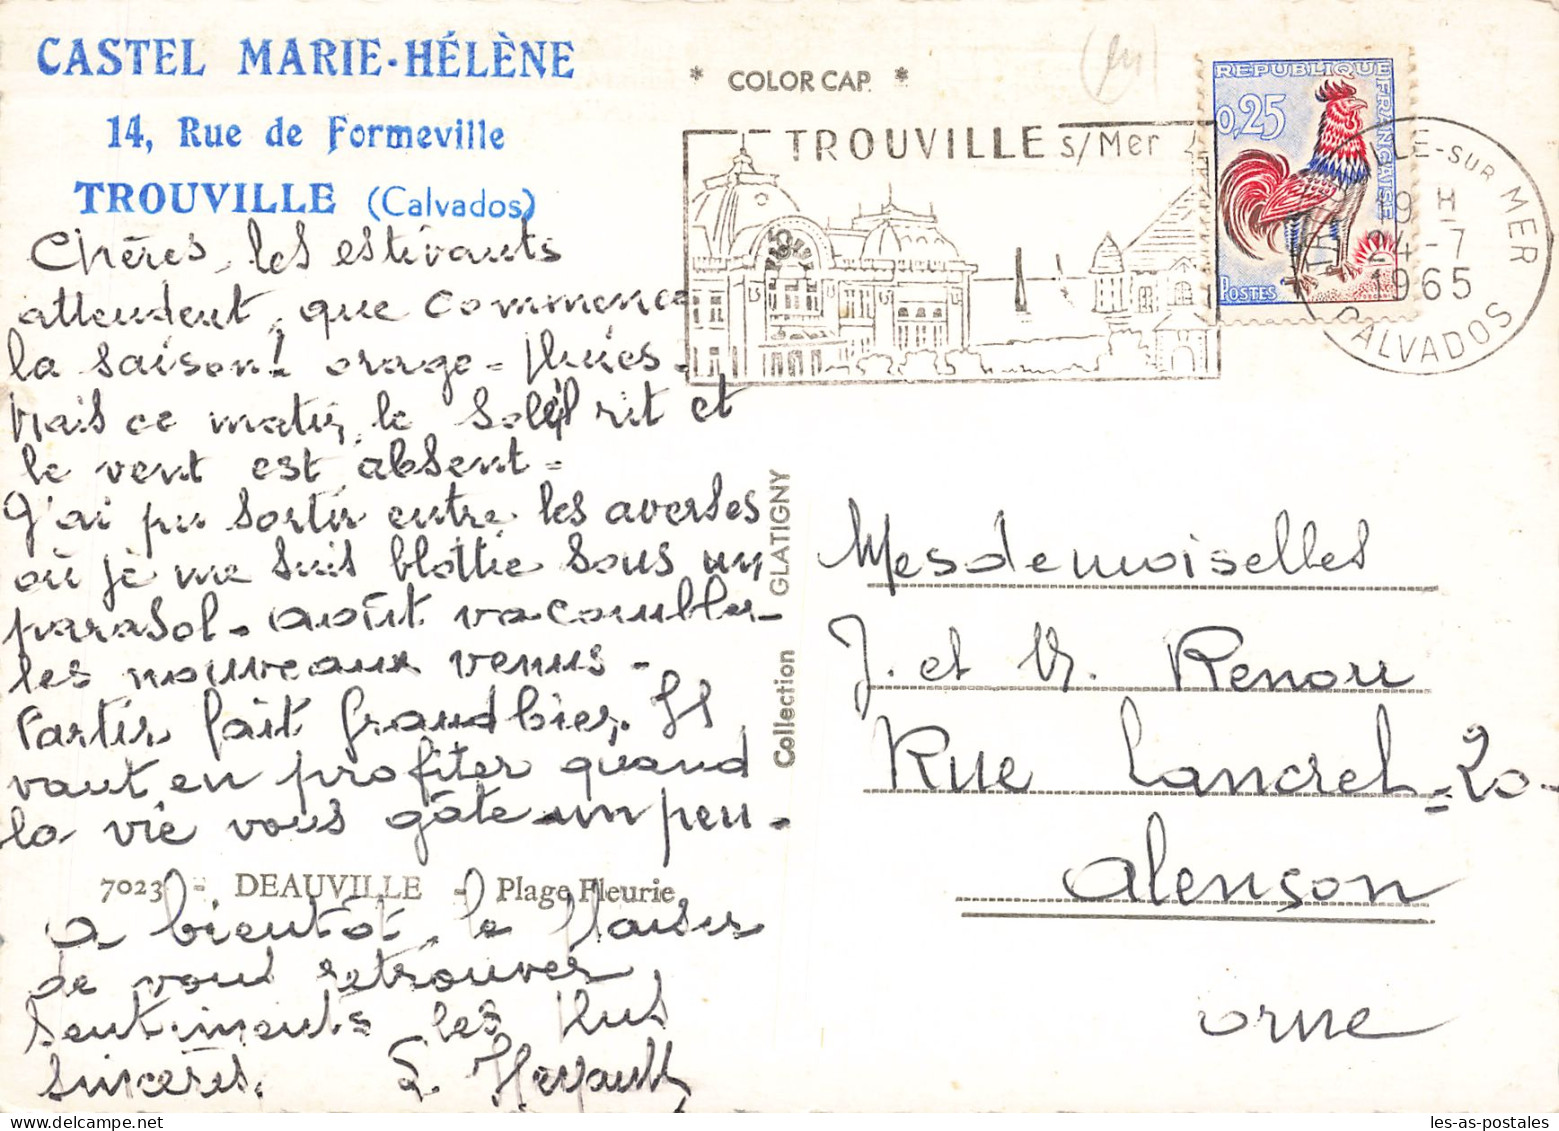 CASTEL MARIE-HÉLÈNE
14, Rue de Formeville
TROUVILLE (Calvados)
* COLOR CAP. *
TROUVILLE s/Mer
REPUBLIQUE FRANÇAISE
0,25
POSTES
TROUVILLE-SUR MER
19 H
24-7
1965
CALVADOS
Chères, les estivants
attendent, que commence
la saison! orage = pluies.
Mais ce matin, le soleil rit et
le vent est absent =
J'ai pu sortir entre les averses
où je me suis blottie sous un
parasol. août va combler
les nouveaux venus.
Partir fait grand bien. Il
vaut en profiter quand
la vie vous gâte un peu.
7023 - DEAUVILLE - Plage Fleurie
a bientôt, le plaisir
de vous retrouver
sentiments les plus
sincères.
Collection GLATIGNY
Mesdemoiselles
J. et
Renou
Rue Lancrel = 20 -
Alençon
Orne
les-as-postales